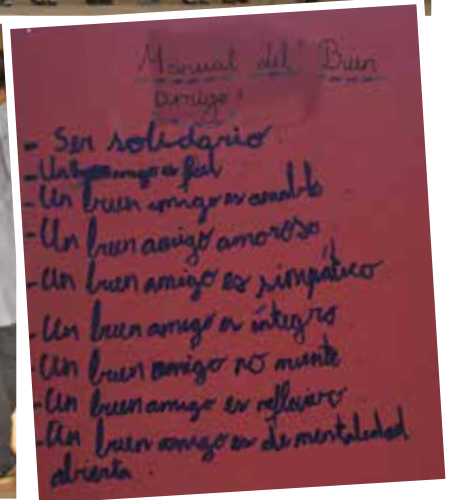 Manual del Buen
amigo
- Ser solidario
- Un buen amigo es fiel
- Un buen amigo es amable
- Un buen amigo amoroso
- Un buen amigo es simpático
- Un buen amigo es íntegro
- Un buen amigo no miente
- Un buen amigo es reflexivo
- Un buen amigo es de mentalidad
abierta.